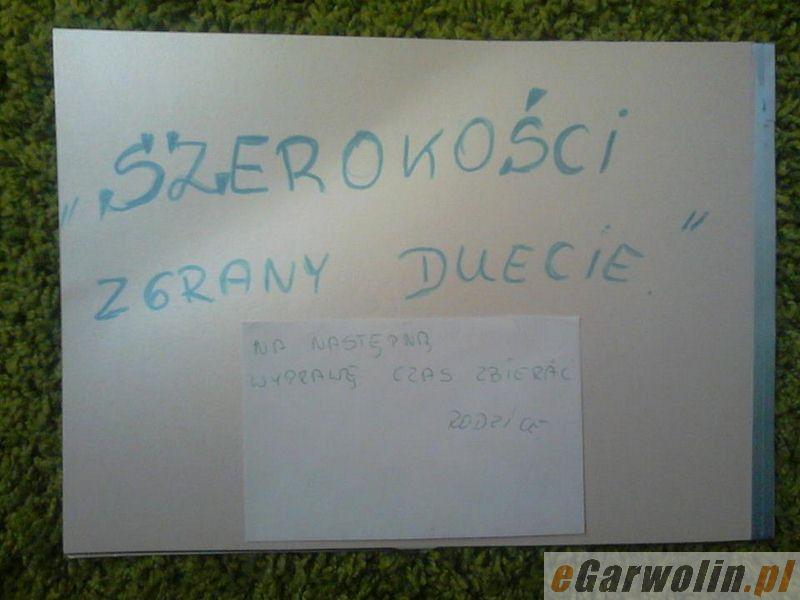 „SZEROKOŚCI
ZGRANY DUECIE."
NA NASTĘPNĄ
WYPRAWĘ CZAS ZBIERAĆ
RODZICE
eGarwolin.pl